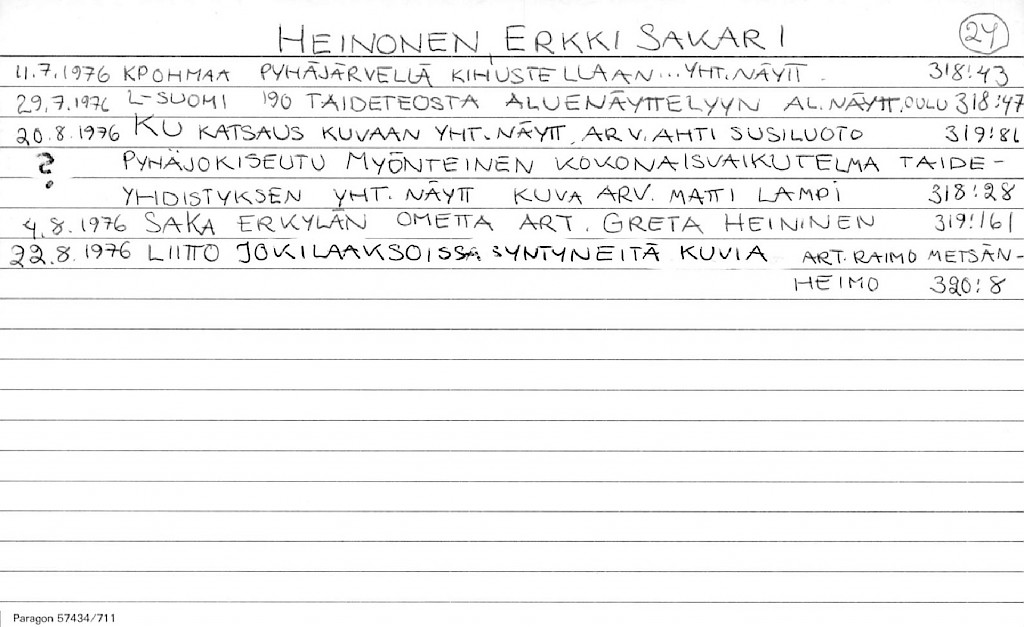 HEINONEN, ERKKI SAKARI 24
11.7.1976 KPOHMAA PYHÄJÄRVELLÄ KIHUSTELLAAN... YHT.NÄYTT. 318:43
29.7.1976 L-SUOMI 190 TAIDETEOSTA ALUENÄYTTELYYN AL.NÄYTT.OULU 318:47
20.8.1976 KU KATSAUS KUVAAN YHT.NÄYTT. ARV.AHTI SUSILUOTO 319:81
? PYHÄJOKISEUTU MYÖNTEINEN KOKONAISVAIKUTELMA TAIDE-
YHDISTYKSEN YHT.NÄYTT KUVA ARV. MATTI LAMPI 318:28
4.8.1976 SAKA ERKYLÄN OMETTA ART. GRETA HEININEN 319:161
22.8.1976 LIITTO JOKILAAKSOISSA SYNTYNEITÄ KUVIA ART. RAIMO METSÄN-
HEIMO 320:8
Paragon 57434/711